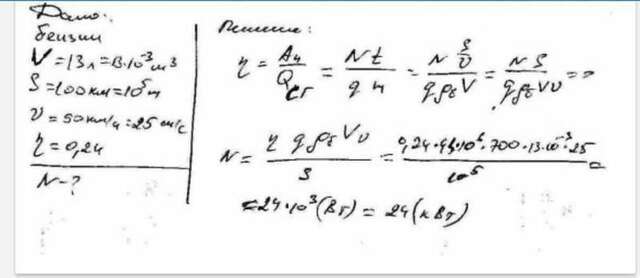 Дано:
бензин
V = 13 л = 13·10⁻³ м³
S = 100 км = 10⁵ м
υ = 90 км/ч = 25 м/с
η = 0,24
N - ?
Решение:
η = Aч/Qсг = Nt/qm = N S/υ / qρб V = NS/qρб Vυ =>
N = ηqρб Vυ/S = 0,24·44·10⁶·700·13·10⁻³·25/10⁵ =
= 24·10³ (Вт) = 24 (кВт)